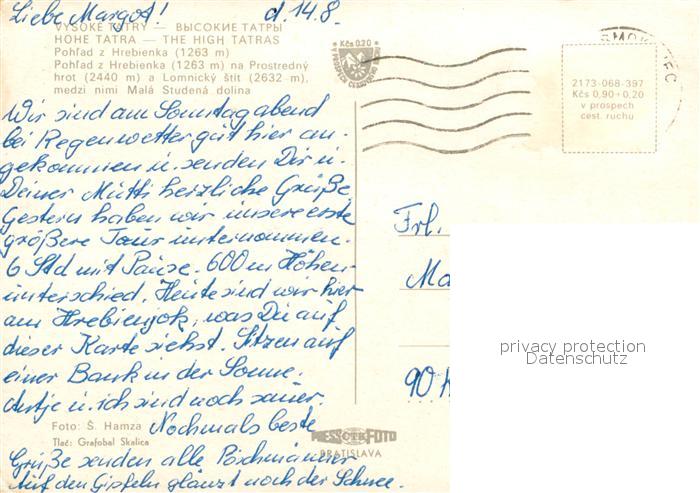 Liebe Margot! d. 14.8.
VYSOKÉ TATRY — ВЫСОКИЕ ТАТРЫ
HOHE TATRA — THE HIGH TATRAS
Pohľad z Hrebienka (1263 m)
Pohľad z Hrebienka (1263 m) na Prostredný
hrot (2440 m) a Lomnický štít (2632 m),
medzi nimi Malá Studená dolina
Wir sind am Sonntag abend
bei Regenwetter gut hier an-
gekommen u. senden Dir u.
Deiner Mutti herzliche Grüße.
Gestern haben wir unsere erste
größere Tour unternommen.
6 Std mit Pause. 600 m Höhen-
unterschied. Heute sind wir hier
am Hrebienjok, was Du auf
dieser Karte siehst. Sitzen auf
einer Bank in der Sonne.
Antje u. ich sind noch
Nochmals beste
Grüße senden alle
Auf den Gipfeln glänzt noch der Schnee.
Foto: Š. Hamza
Tlač: Grafobal Skalica
Kčs 0,20
SMOKOVEC
2173-068-397
Kčs 0,90+0,20
v prospech
cest. ruchu
Frl.
Ma
90
PRESS ČTK FOTO
BRATISLAVA
privacy protection
Datenschutz